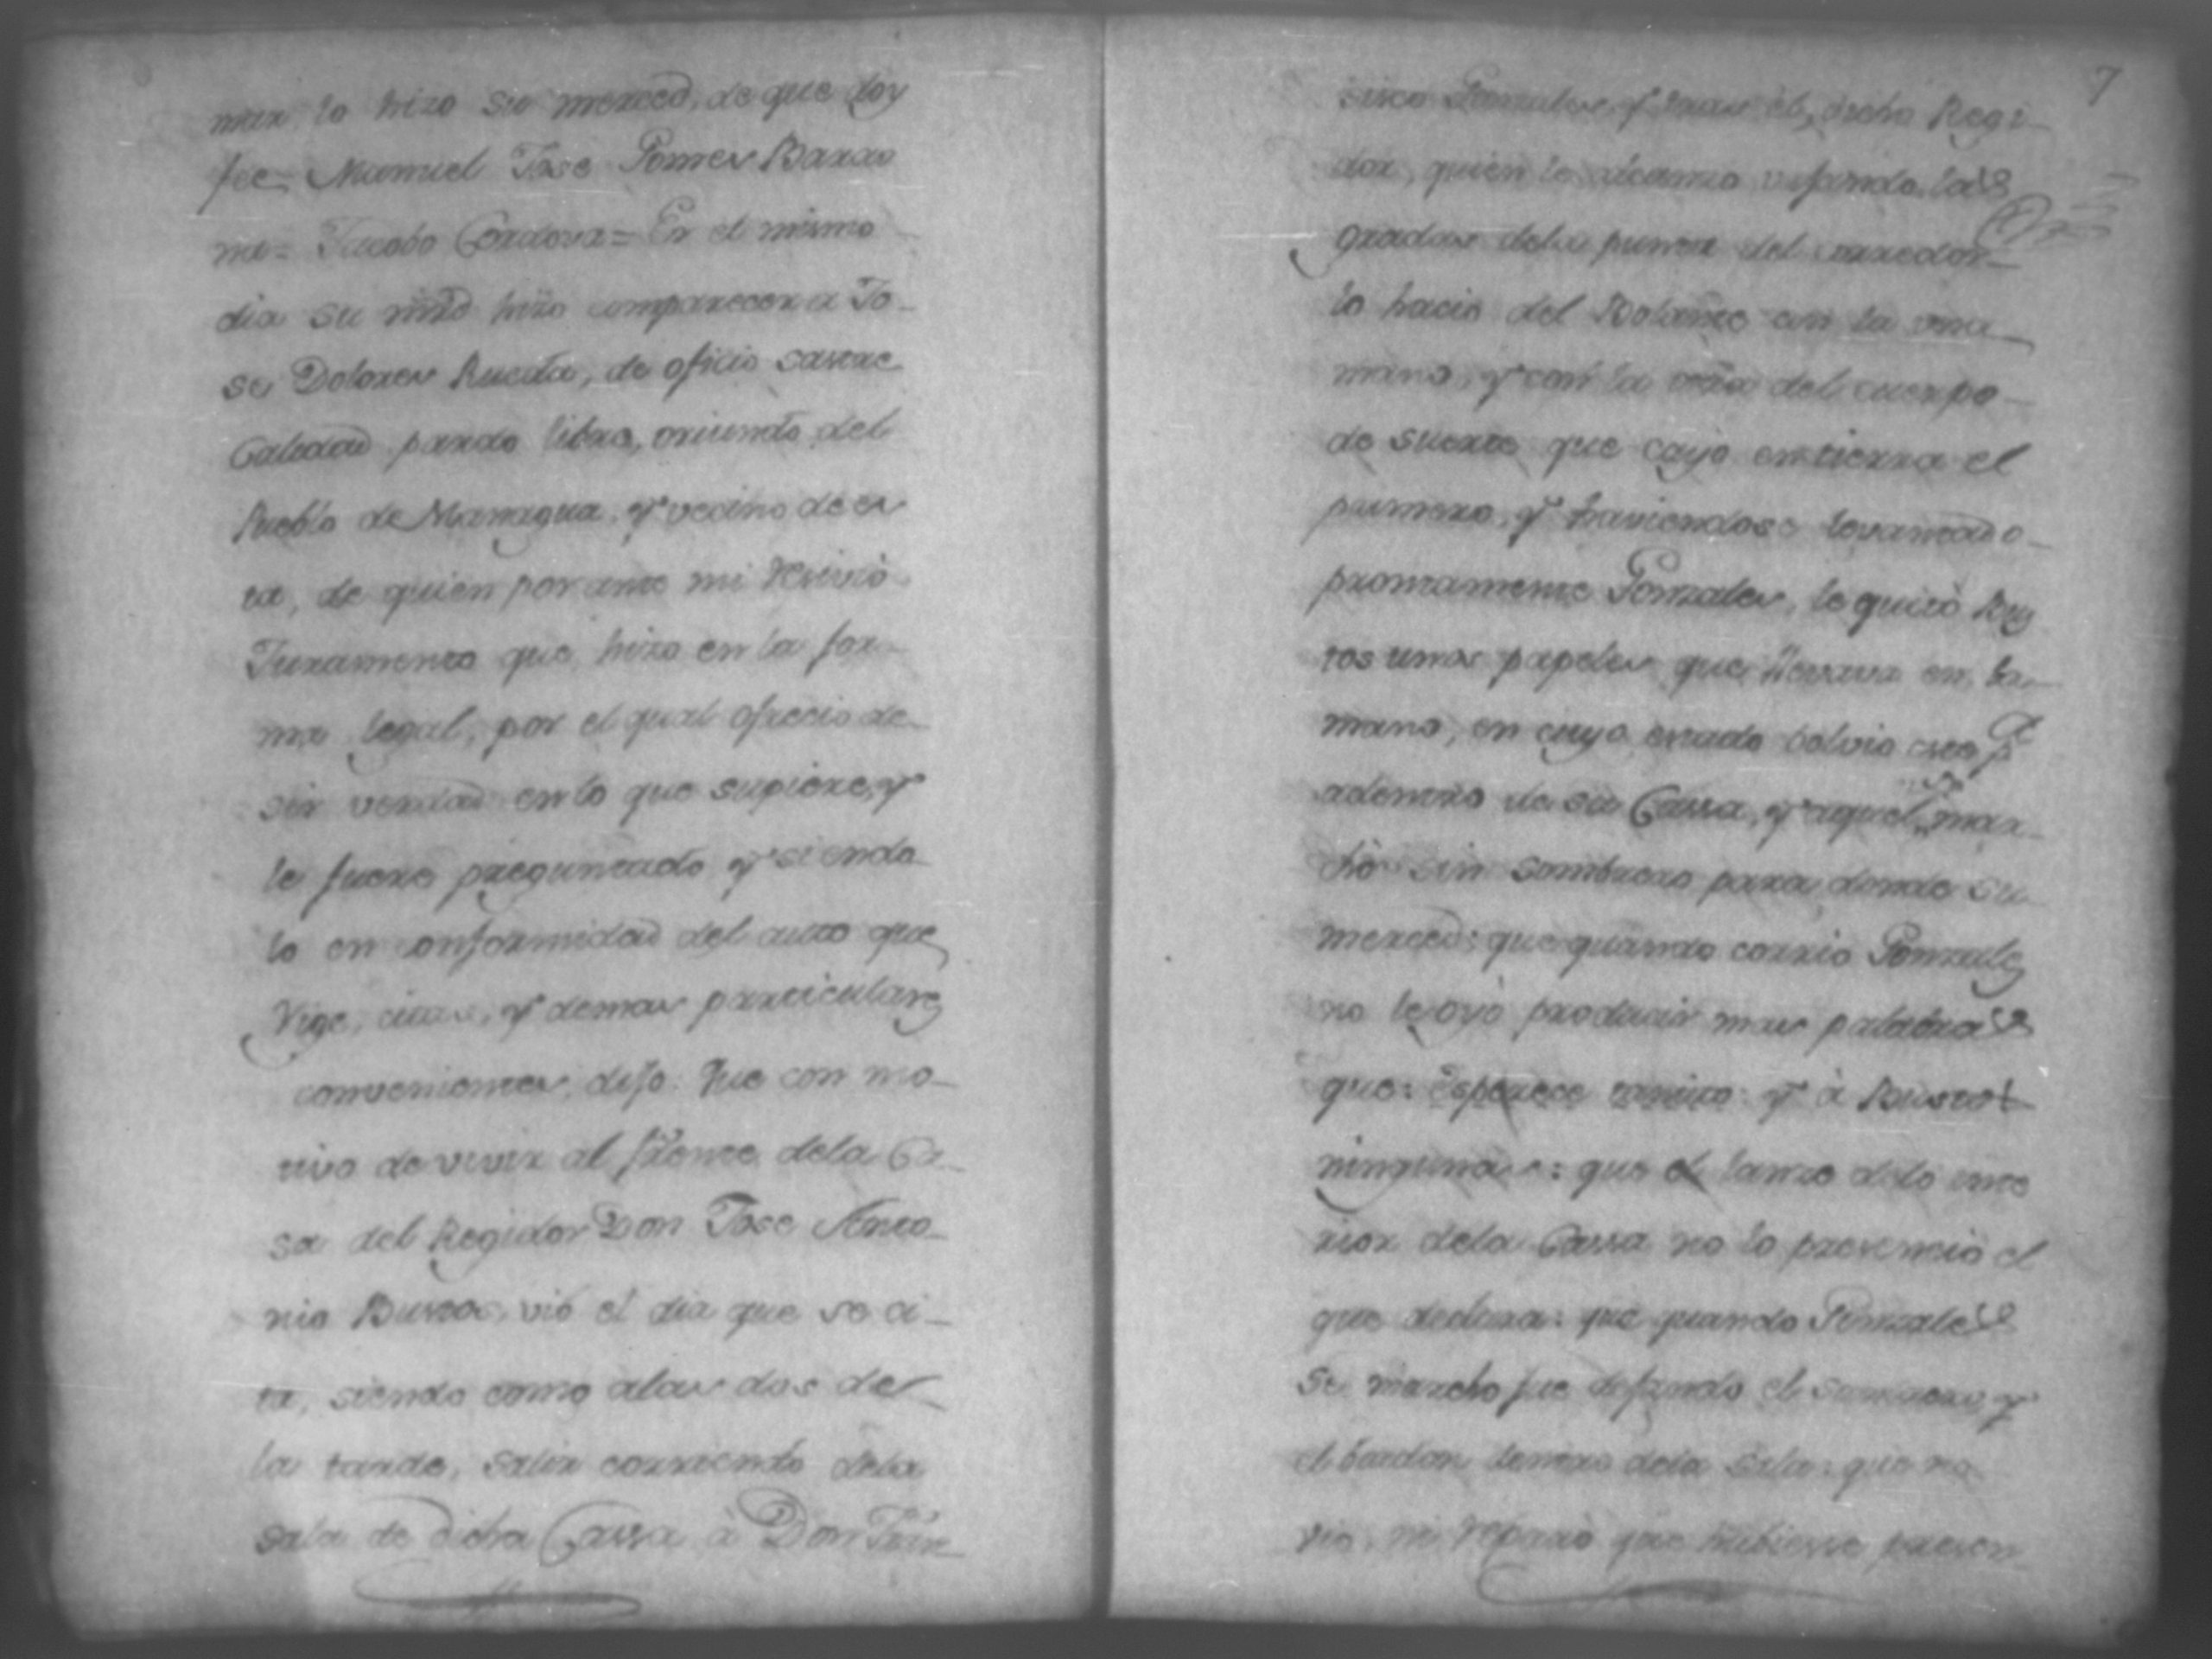 mar lo hizo su merced, de que doy
fee = Manuel Jose Gomes Barxo
me = Jacobo Cordova = En el mismo
dia su mrd hizo comparecer a Jo-
se Dolores Rueda, de oficio sastre
Calidad pardo libre, oriundo del
Pueblo de Managua, y vecino de es
ta, de quien por ante mi recivio
Juramento que hizo en la for-
ma legal, por el qual ofrecio de-
sir verdad en lo que supiere, y
le fuere preguntado y siendo
lo en conformidad del auto que
Rige, citas, y demas particulares
convenientes, dijo: Que con mo-
tivo de vivir al frente dela Ca-
sa del Regidor Don Jose Anto-
nio Bustos, vió el dia que se ci-
ta, siendo como alas dos de
la tarde, salir corriendo dela
sala de dicha Cassa à Don Fran
7
sisco Gonzales, y tras el, dicho Regi-
dor, quien le alcanzo bajando las
gradas dela punta del corredor
lo hacio del Bolante con la una
mano, y con la otra del cuerpo
de suerte que cayo en tierra el
primero, y haviendose levantado
prontamente Gonzales, le quitò Bus
tos unos papeles que llevava en la
mano, en cuyo estado bolvio este pa
adentro de su Cassa, y aquel se mar
chò sin sombrero para donde su
merced: que quando corrio Gonzales
no le oyò producir mas palabras
que: esperece tantito: y à Bustos
ningunas: que el lanze delo inte
rior dela Cassa no lo presenció el
que declara: que quando Gonzales
se marcho fue dejando el sombrero, y
el bardon dentro dela sala: que no
vio, ni reparò que hubiesse presen